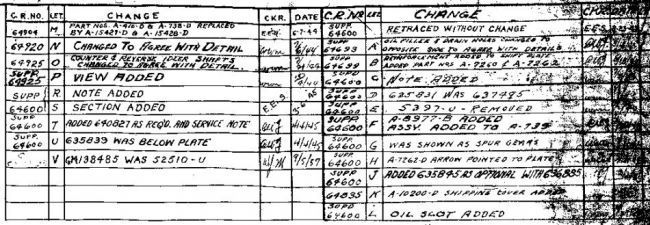 C.R.NO. LET. CHANGE CKR. DATE
64904 M PART NOS. A-416-D & A-738-D REPLACED BY A-15421-D & A-15428-D
64920 N CHANGED TO AGREE WITH DETAIL
64925 O COUNTER & REVERSE IDLER SHAFTS CHANGED TO AGREE WITH DETAIL
SUPP. 64925 P VIEW ADDED
SUPP R NOTE ADDED
64600 S SECTION ADDED
SUPP 64600 T ADDED 640827 AS REQ'D. AND SERVICE NOTE 4/4/45
SUPP. 64600 U 635839 WAS BELOW PLATE 4/4/45
V GM138485 WAS 52510-U 9/5/57
C.R.NO. LET. CHANGE
SUPP 64600 RETRACED WITHOUT CHANGE
SUPP 64699 A OIL FILLER & DRAIN HOLES CHANGED TO OPPOSITE SIDE TO AGREE WITH DETAILS
SUPP 64699 B REINFORCEMENT ADDED TO SHIFT PLATE ADDED PART NOS A-7260 & A-7262
C NOTE ADDED
SUPP 64600 D 625831 WAS 637495
SUPP 64600 E 5397-U - REMOVED
SUPP 64600 F A-8977-B ADDED ASSY. ADDED TO A-735
SUPP 64600 G WAS SHOWN AS SPUR GEARS
SUPP 64600 H A-7262-D ARROW POINTED TO PLATE
SUPP 64600 J ADDED 635845 AS OPTIONAL WITH
64835 K A-10200-D SHIPPING COVER ADDED
SUPP 64600 L OIL SLOT ADDED